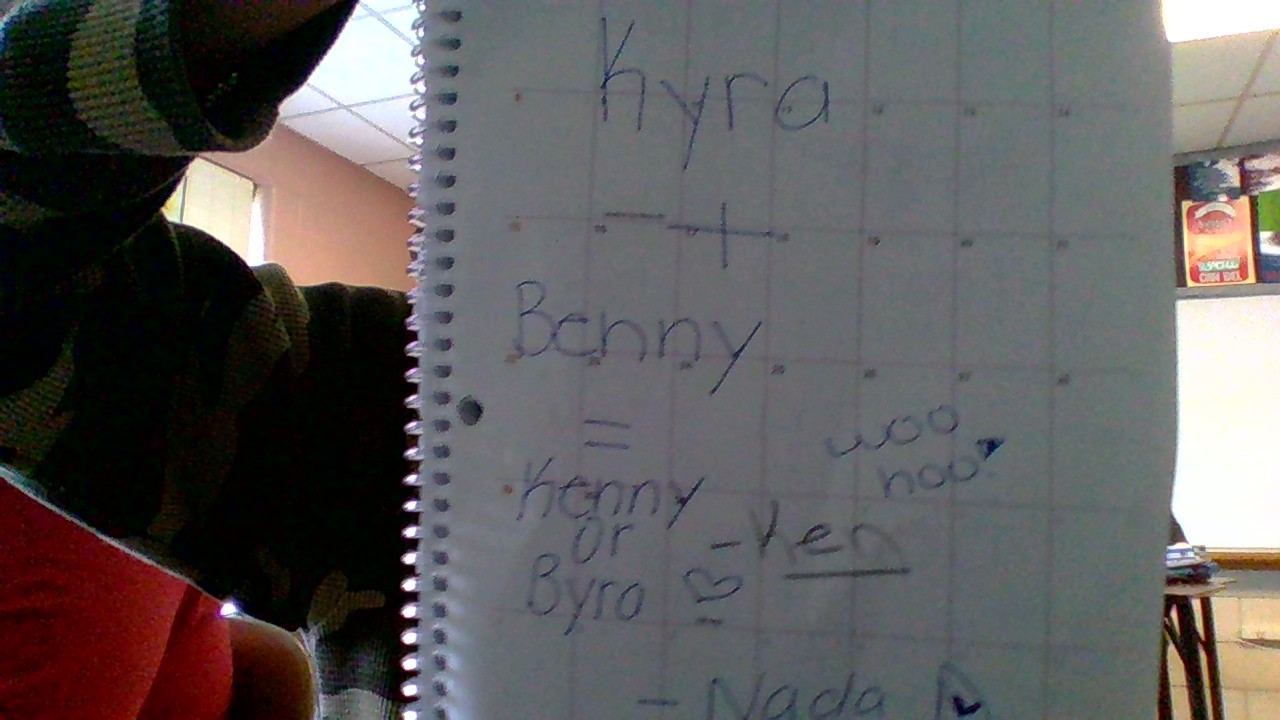 Kyra
- +
Benny
=
Kenny
or
Byro ♡
woo
hoo
- Ken
- Nada